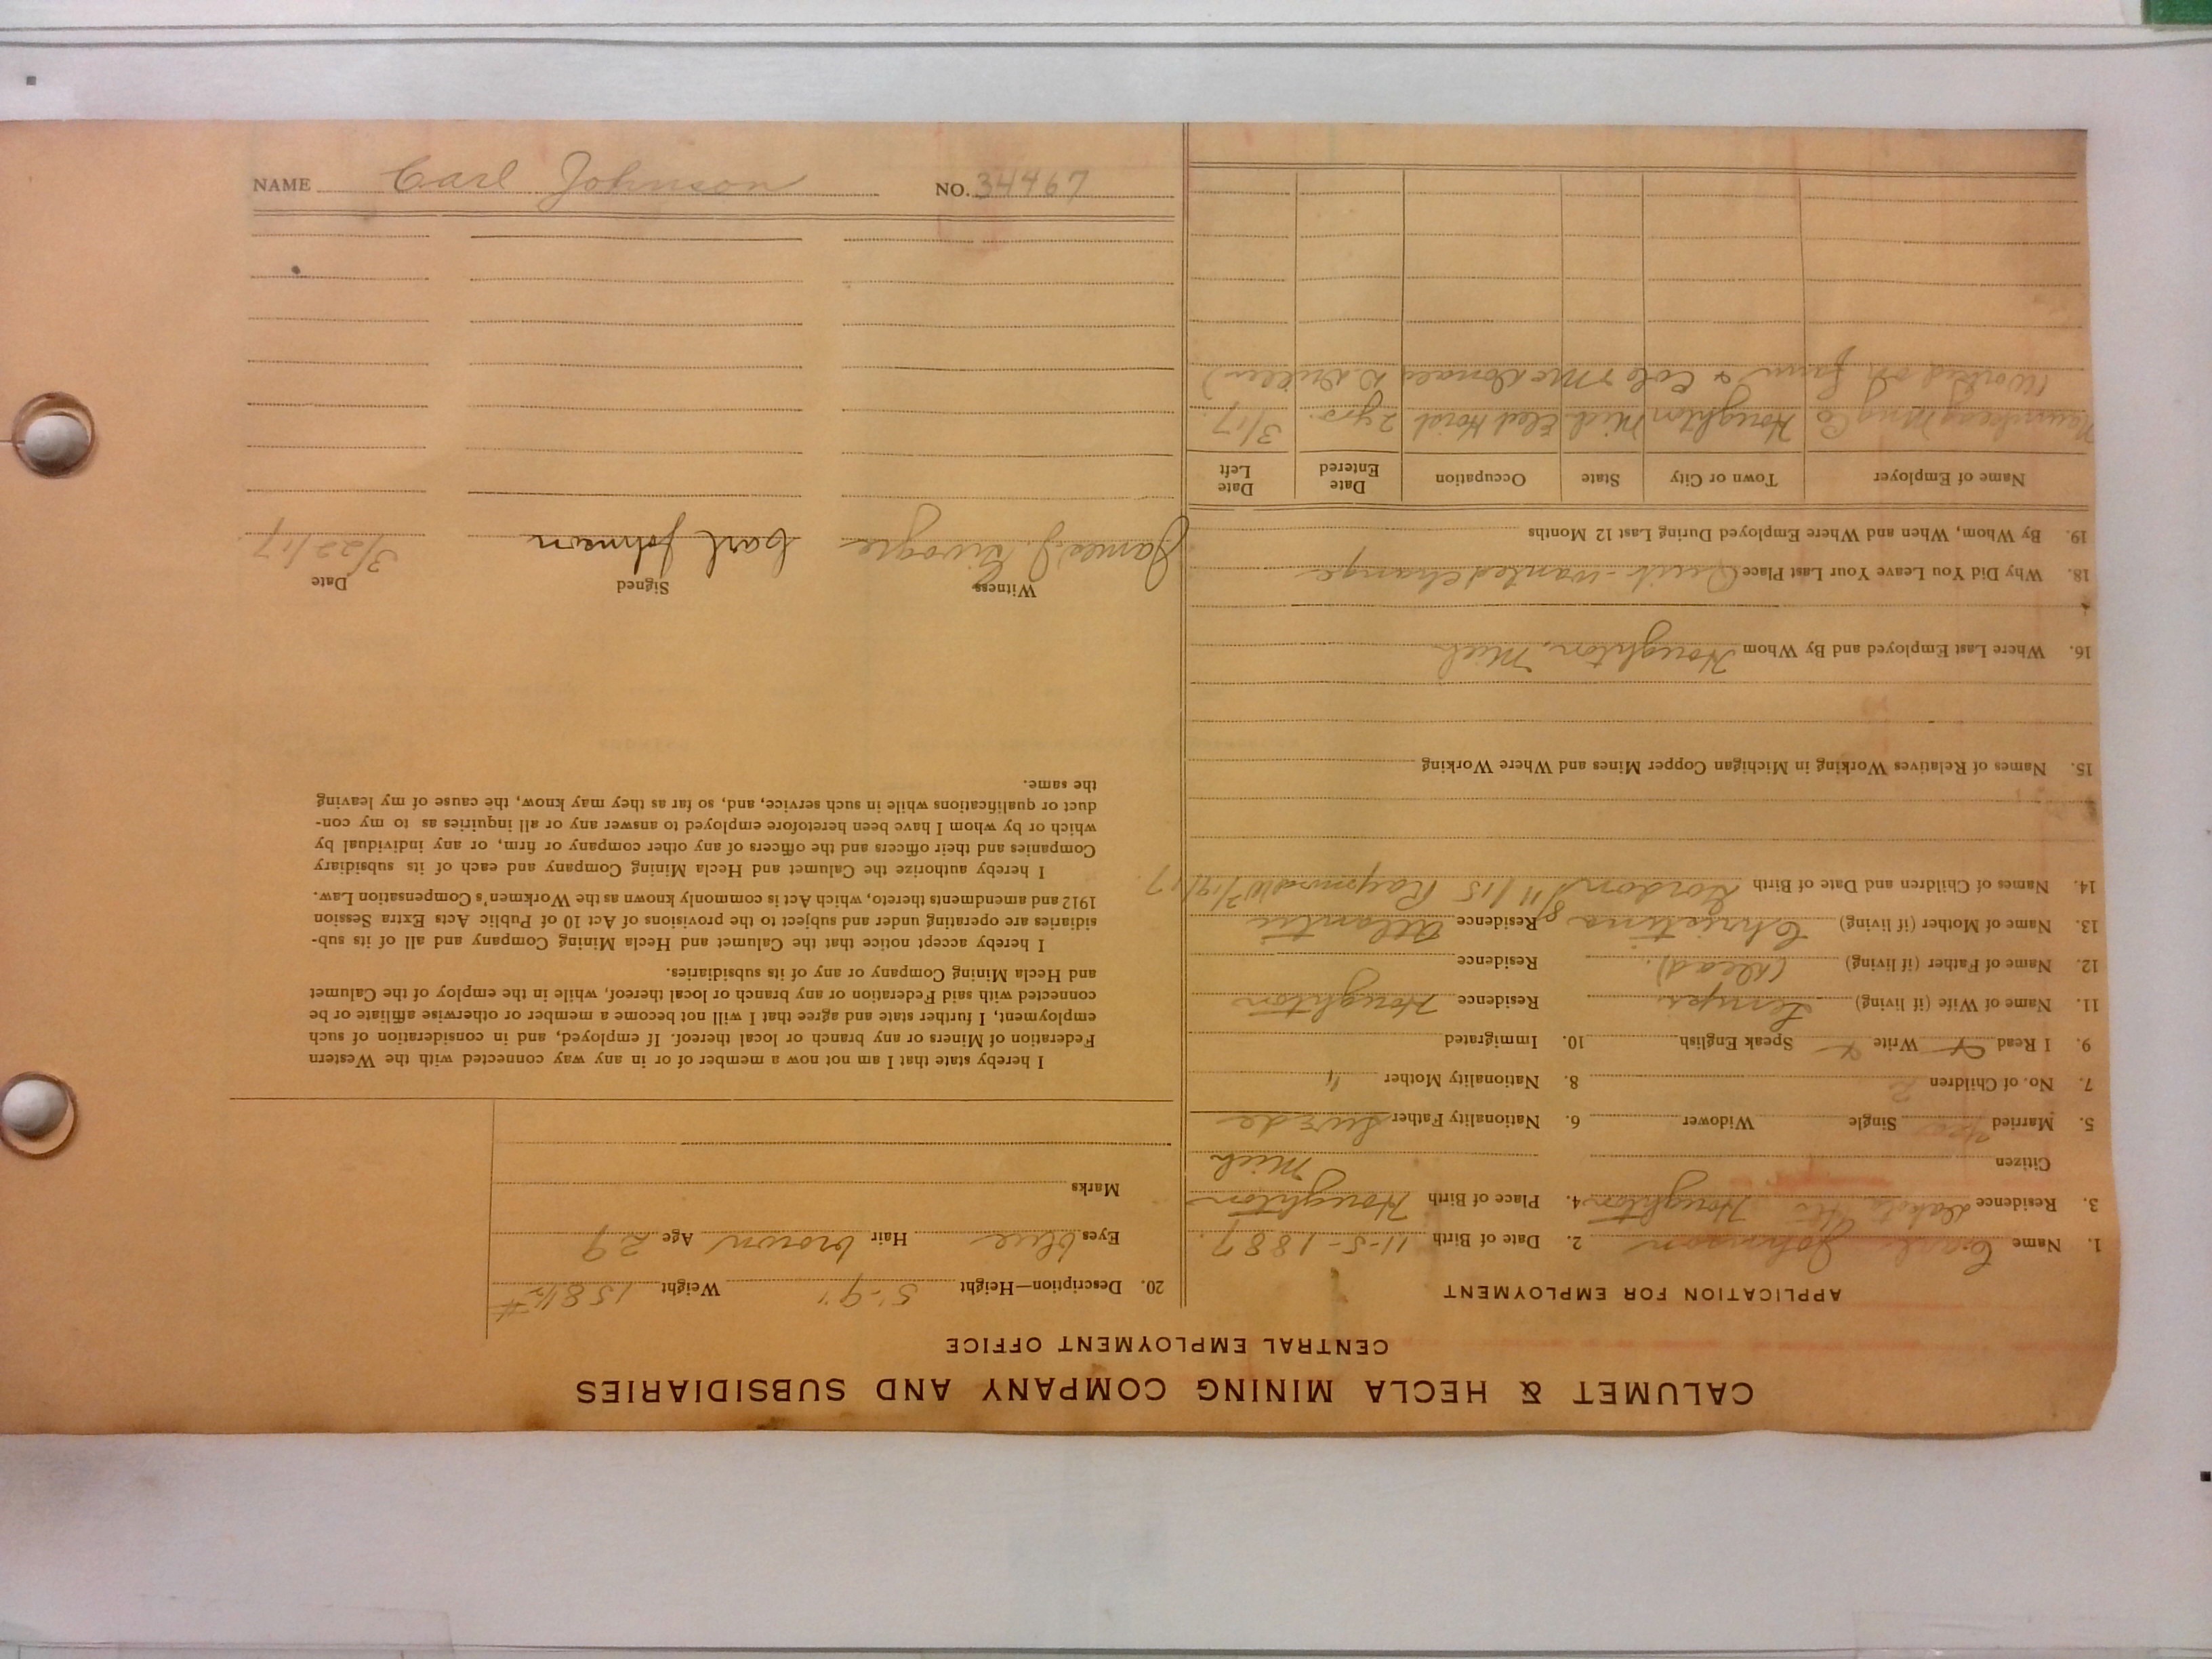 CALUMET & HECLA MINING COMPANY AND SUBSIDIARIES
CENTRAL EMPLOYMENT OFFICE
APPLICATION FOR EMPLOYMENT
1. Name Carl Johnson 2. Date of Birth 11-5-1887
3. Residence Dakota Hts Houghton 4. Place of Birth Houghton
Citizen Mich
5. Married yes Single Widower 6. Nationality Father Swede
7. No. of Children 2 8. Nationality Mother "
9. I Read x Write x Speak English 10. Immigrated
11. Name of Wife (if living) Residence Houghton
12. Name of Father (if living) (Dead). Residence
13. Name of Mother (if living) Christina Residence Atlantic
14. Names of Children and Date of Birth Gordon 8/11/15 Raymond
15. Names of Relatives Working in Michigan Copper Mines and Where Working
16. Where Last Employed and By Whom Houghton, Mich
18. Why Did You Leave Your Last Place Quit - wanted change
19. By Whom, When and Where Employed During Last 12 Months
Name of Employer Town or City State Occupation Date Entered Date Left
Mng Co Houghton Mich Elect Hoist 2 yrs. 3/17
(Worked on farm & Cole & McDonald D. Driller)
20. Description—Height 5'-9" Weight 158½ #
Eyes blue Hair brown Age 29
Marks
I hereby state that I am not now a member of or in any way connected with the Western
Federation of Miners or any branch or local thereof. If employed, and in consideration of such
employment, I further state and agree that I will not become a member or otherwise affiliate or be
connected with said Federation or any branch or local thereof, while in the employ of the Calumet
and Hecla Mining Company or any of its subsidiaries.
I hereby accept notice that the Calumet and Hecla Mining Company and all of its sub-
sidiaries are operating under and subject to the provisions of Act 10 of Public Acts Extra Session
1912 and amendments thereto, which Act is commonly known as the Workmen's Compensation Law.
I hereby authorize the Calumet and Hecla Mining Company and each of its subsidiary
Companies and their officers and the officers of any other company or firm, or any individual by
which or by whom I have been heretofore employed to answer any or all inquiries as to my con-
duct or qualifications while in such service, and, so far as they may know, the cause of my leaving
the same.
Witness Signed Date
James J. Carl Johnson 3/22/17
NAME Carl Johnson NO. 34467